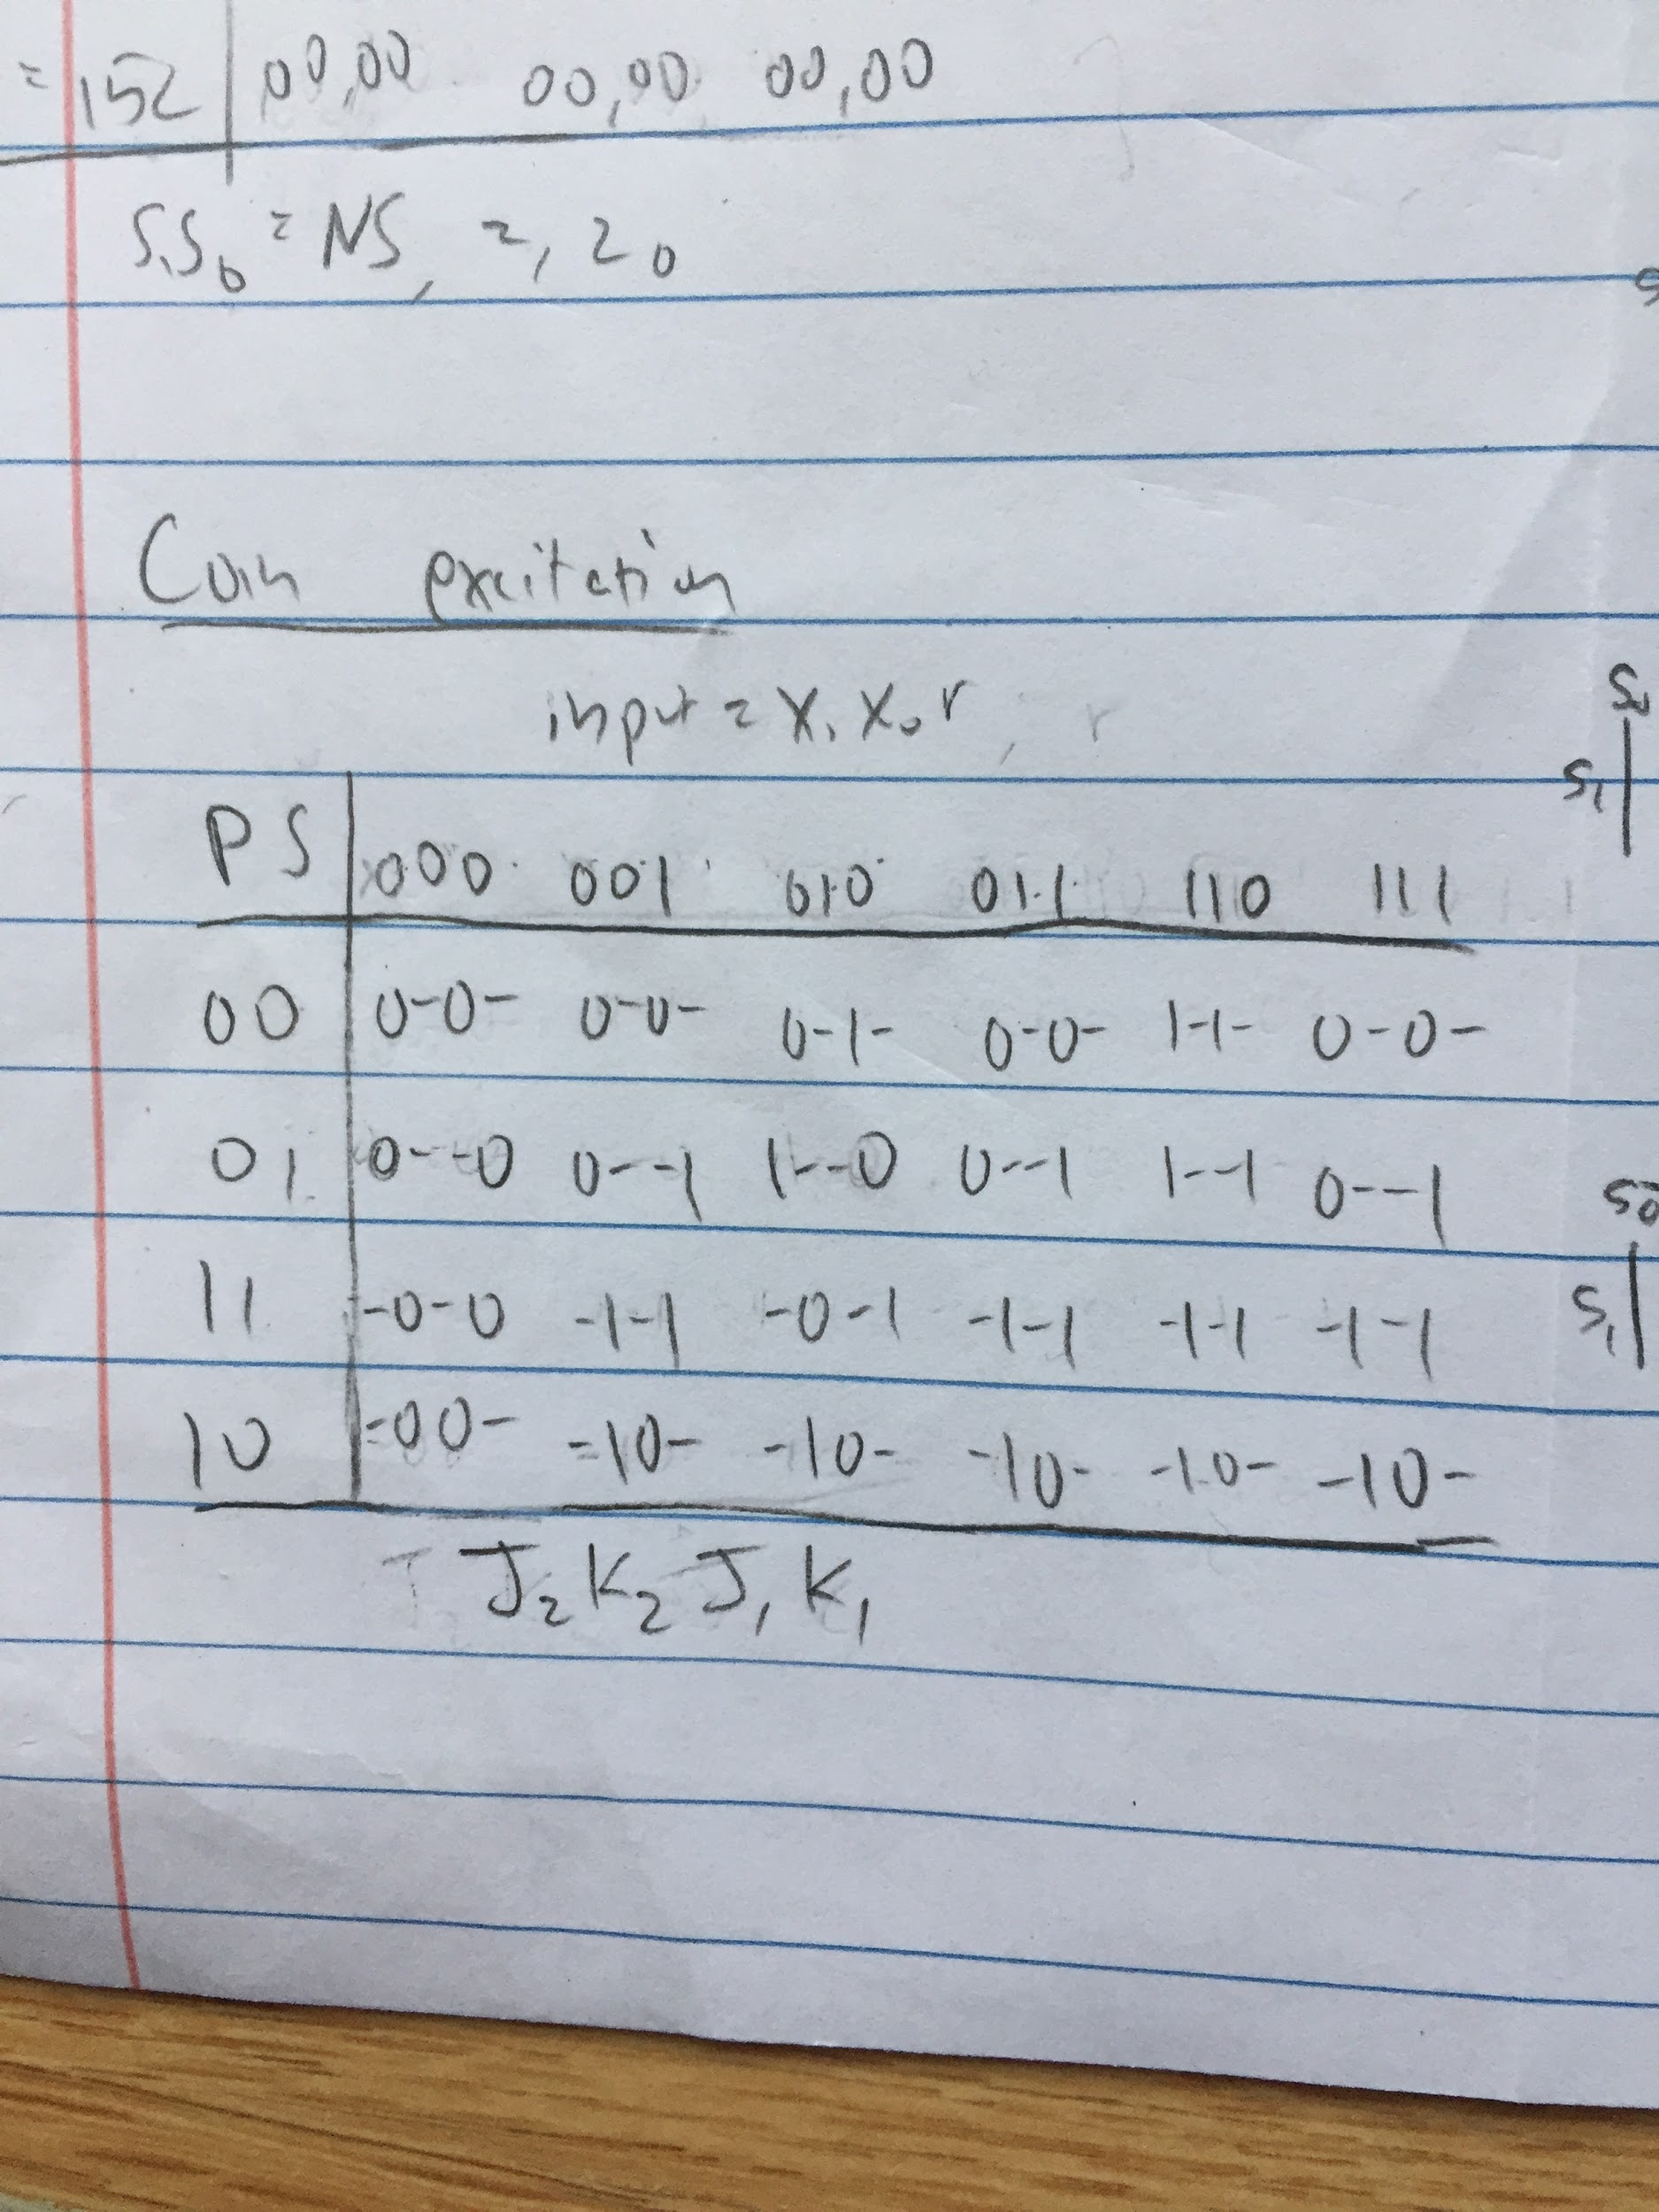 = 152 | 00,00 00,00 00,00
S₁S₀ = NS, z₁ z₀
Coin excitation
input = x₁ x₀ r, r
PS | 000 001 010 011 110 111
00 | 0-0- 0-0- 0-1- 0-0- 1-1- 0-0-
01 | 0--0 0--1 1--0 0--1 1--1 0--1
11 | -0-0 -1-1 -0-1 -1-1 -1-1 -1-1
10 | -00- -10- -10- -10- -10- -10-
J₂ K₂ J₁ K₁
S₀
S₁
S₀
S₁